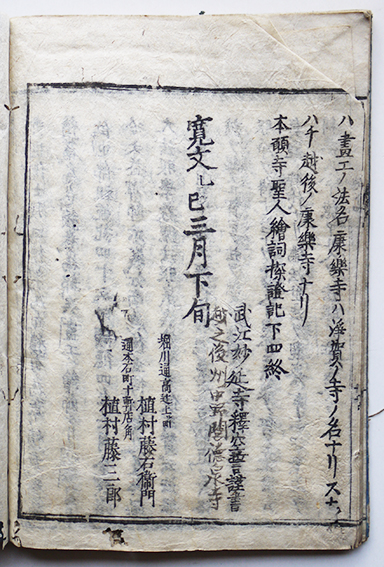 ハ畫工ノ法名康樂寺ハ淨賀ノ寺ノ名ナリスナハ
ハチ越後ノ康樂寺ナリ
本願寺聖人繪詞探證記下四終
寛文九己巳三月下旬
武江妙延寺釋空誓證書
越之後州中野間德泉寺
堀川通高辻上町
植村藤右衞門
通本石町十軒店角
植村藤三郎